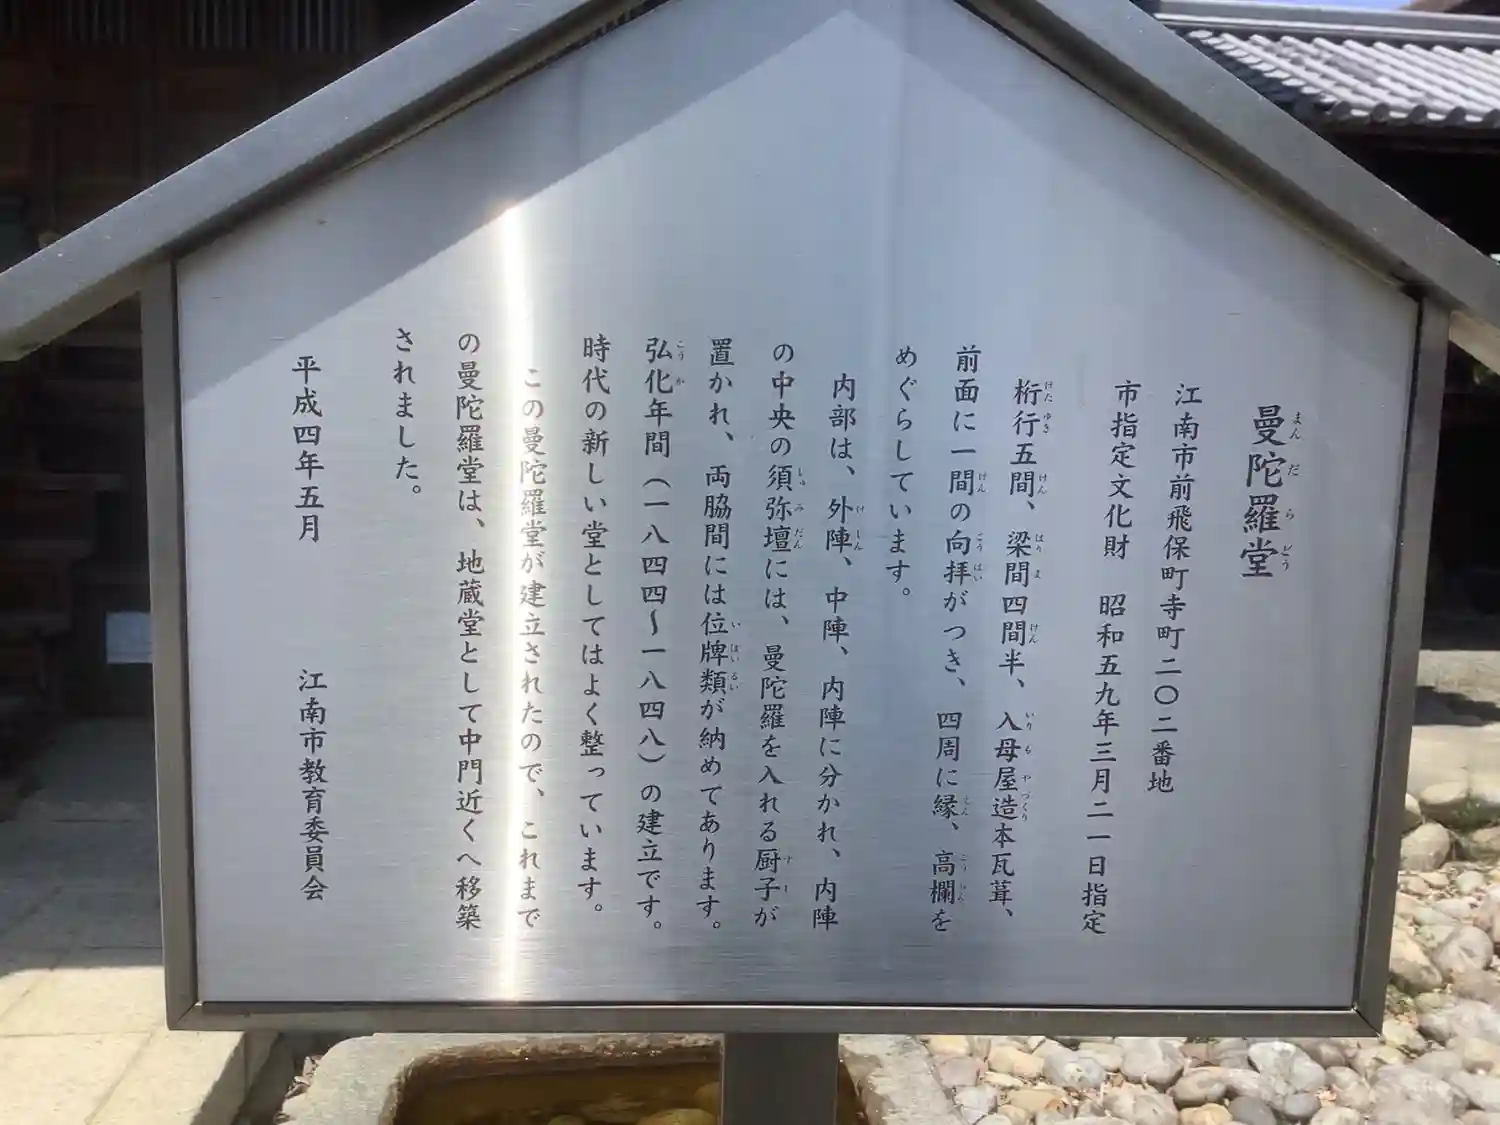 曼陀羅堂
江南市前飛保町寺町二〇二番地
市指定文化財　昭和五九年三月二一日指定
桁行五間、梁間四間半、入母屋造本瓦葺、
前面に一間の向拝がつき、四周に縁、高欄を
めぐらしています。
内部は、外陣、中陣、内陣に分かれ、内陣
の中央の須弥壇には、曼陀羅を入れる厨子が
置かれ、両脇間には位牌類が納めてあります。
弘化年間（一八四四〜一八四八）の建立です。
時代の新しい堂としてはよく整っています。
この曼陀羅堂が建立されたので、これまで
の曼陀羅堂は、地蔵堂として中門近くへ移築
されました。
平成四年五月　江南市教育委員会